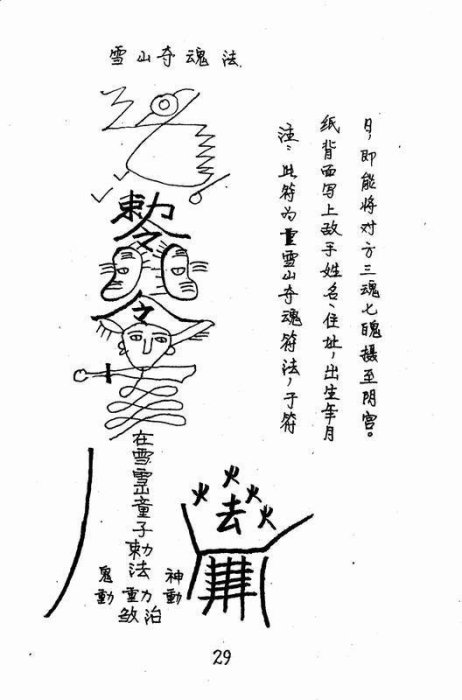 雪山夺魂法
注：此符为重雪山夺魂符法，于符
纸背面写上敌手姓名、住址，出生年月
日，即能将对方三魂七魄摄至阴宫。
敕
令
令
在雪雪山童子敕法
鬼動
神動
火火火火
去
29